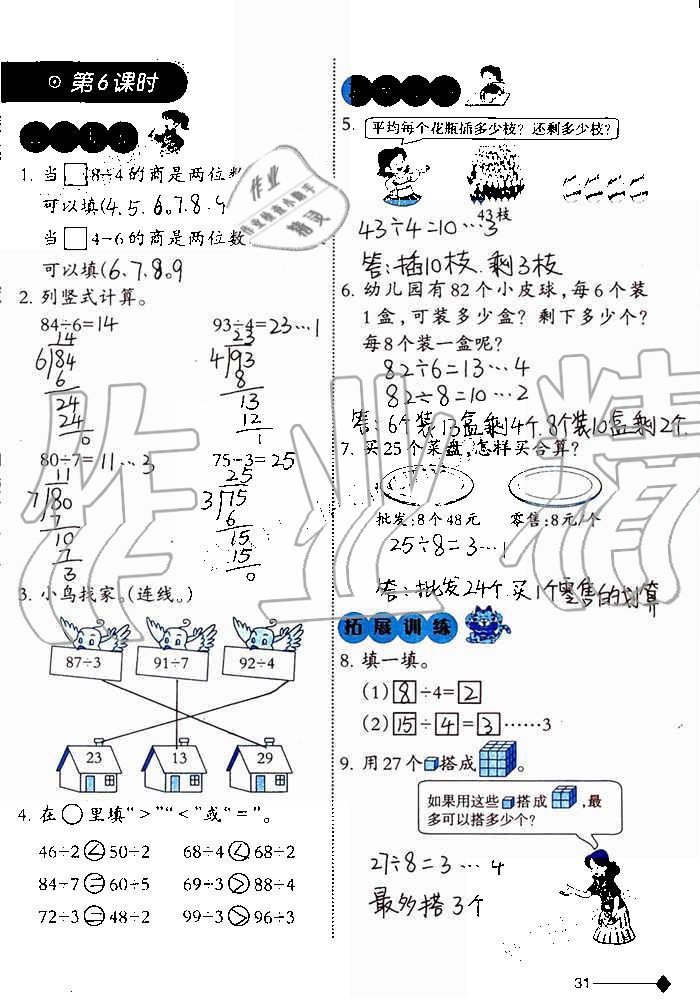 第6课时
1. 当□8÷4的商是两位数
可以填(4、5、6、7、8、9
当□4÷6的商是两位数
可以填(6、7、8、9
2. 列竖式计算。
84÷6=14 93÷4=23…1
14 23
6 84 4 93
6 8
24 13
24 12
0 1
80÷7=11…3 75÷3=25
11 25
7 80 3 75
7 6
10 15
7 15
3 0
3. 小鸟找家。(连线。)
87÷3 91÷7 92÷4
23 13 29
4. 在○里填“>”“<”或“=”。
46÷2<50÷2 68÷4<68÷2
84÷7=60÷5 69÷3>88÷4
72÷3=48÷2 99÷3>96÷3
5. 平均每个花瓶插多少枝？还剩多少枝？
43枝
43÷4=10…3
答:插10枝.剩3枝
6. 幼儿园有82个小皮球，每6个装
1盒，可装多少盒？剩下多少个？
每8个装一盒呢？
82÷6=13…4
82÷8=10…2
答:6个装13盒剩4个.8个装10盒剩2个
7. 买25个菜盘，怎样买合算？
批发:8个48元 零售:8元/个
25÷8=3…1
答:批发24个.买1个零售的划算
拓展训练
8. 填一填。
(1) 8÷4=2
(2) 15÷4=3……3
9. 用27个搭成。
如果用这些搭成，最
多可以搭多少个？
27÷8=3…4
最多搭3个
31
作业
作业检查小助手
精灵
作业精